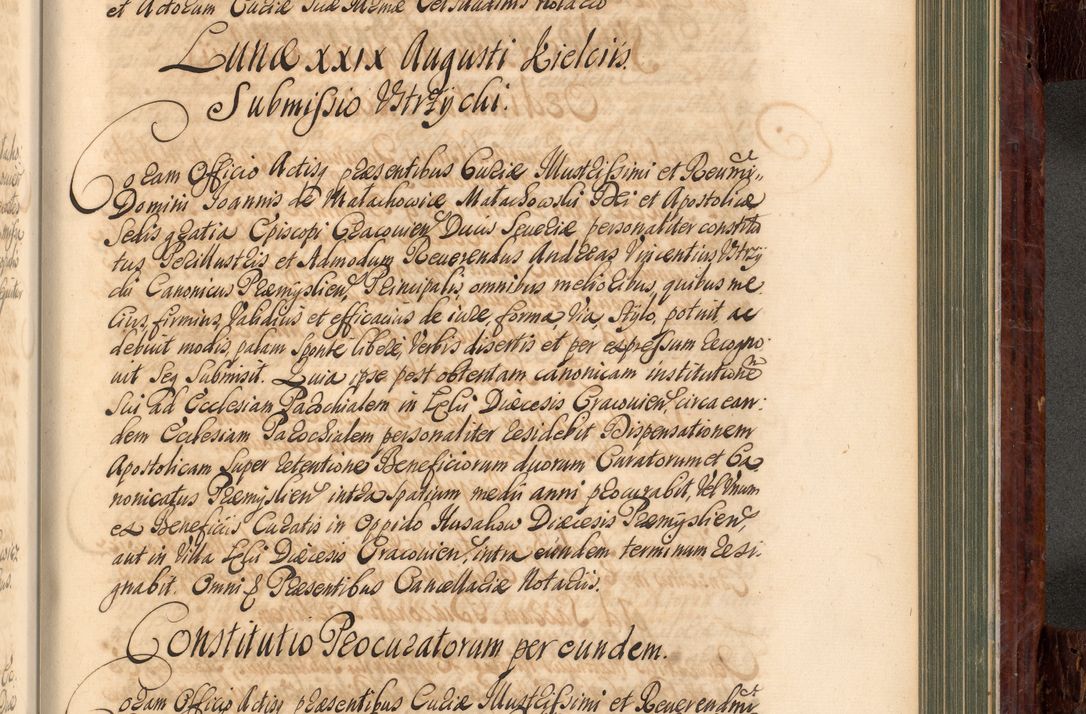 et Actorum Curiæ suæ
Lunæ XXIX Augusti Kielciis.
Submissio Ustrzycki.
Coram Officio Actisq præsentibus Curiæ Illustrissimi et Reverendissimi
Domini Joannis de Małachowice Małachowski Dei et Apostolicæ
Sedis gratia Episcopi Cracovien, Ducis Severiæ personaliter constitu
tus Perillustris et Admodum Reverendus Andreas Vincentius Ustrzy
cki Canonicus Præmyslien, Principalis, omnibus melioribus, quibus me
lius, firmius, validius et efficacius de iure, forma, via, stylo, potuit ac
debuit modis, palam sponte libere, verbis disertis et per expressum recogno
vit seq submisit. Quia ipse post obtentam canonicam institutione
sui ad Ecclesiam Parochialem in Lelii Diæcesis Cracovien, circa ean:
dem Ecclesiam Parochialem personaliter residebit Dispensationem
Apostolicam super retentione Beneficiorum duorum Curatorum et Ca
nonicatus Præmyslien intra spatium medii anni procurabit, vel unum
ex Beneficiis Curatis in Oppido Husakow Diæcesis Præmyslien,
aut in Villa Lelii Diæcesis Cracovien, intra eundem terminum resi
gnabit. Omni Præsentibus Cancellariæ Notariis.
Constitutio Procuratorum per eundem.
Coram Officio Actisq præsentibus Curiæ Illustrissimi et Reverendissimi